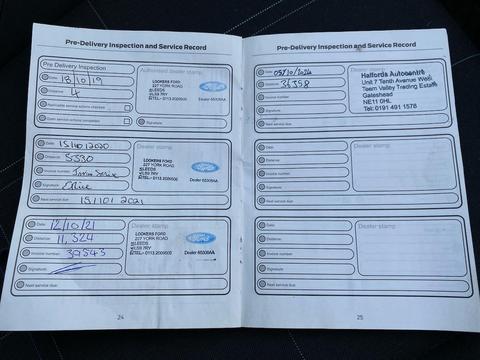 Pre-Delivery Inspection and Service Record
Pre Delivery Inspection
Date: 18/10/19
Distance: 4
Repairable service actions checked
Open service actions completed
Authorised dealer stamp
LOOKERS FORD
227 YORK ROAD
LEEDS
LS9 7RY
TEL - 0113 2009500
Ford
Dealer 65308AA
Signature:
Date: 15/10/2020
Distance: 5530
Invoice number:
Signature:
Next service due: 15/10/2021
Dealer stamp
LOOKERS FORD
227 YORK ROAD
LEEDS
LS9 7RY
TEL - 0113 2009500
Ford
Dealer 65308AA
Date: 12/10/21
Distance: 11,324
Invoice number: 39543
Signature:
Next service due:
Dealer stamp
LOOKERS FORD
227 YORK ROAD
LEEDS
LS9 7RY
TEL - 0113 2009500
Ford
Dealer 65308AA
24
Pre-Delivery Inspection and Service Record
Date: 05/10/2024
Distance: 36358
Invoice number:
Signature:
Next service due:
Dealer stamp
Halfords Autocentre
Unit 7 Tenth Avenue West
Team Valley Trading Estate
Gateshead
NE11 0HL
Tel: 0191 491 1578
Date:
Distance:
Invoice number:
Signature:
Next service due:
Dealer stamp
Date:
Distance:
Invoice number:
Signature:
Next service due:
Dealer stamp
25